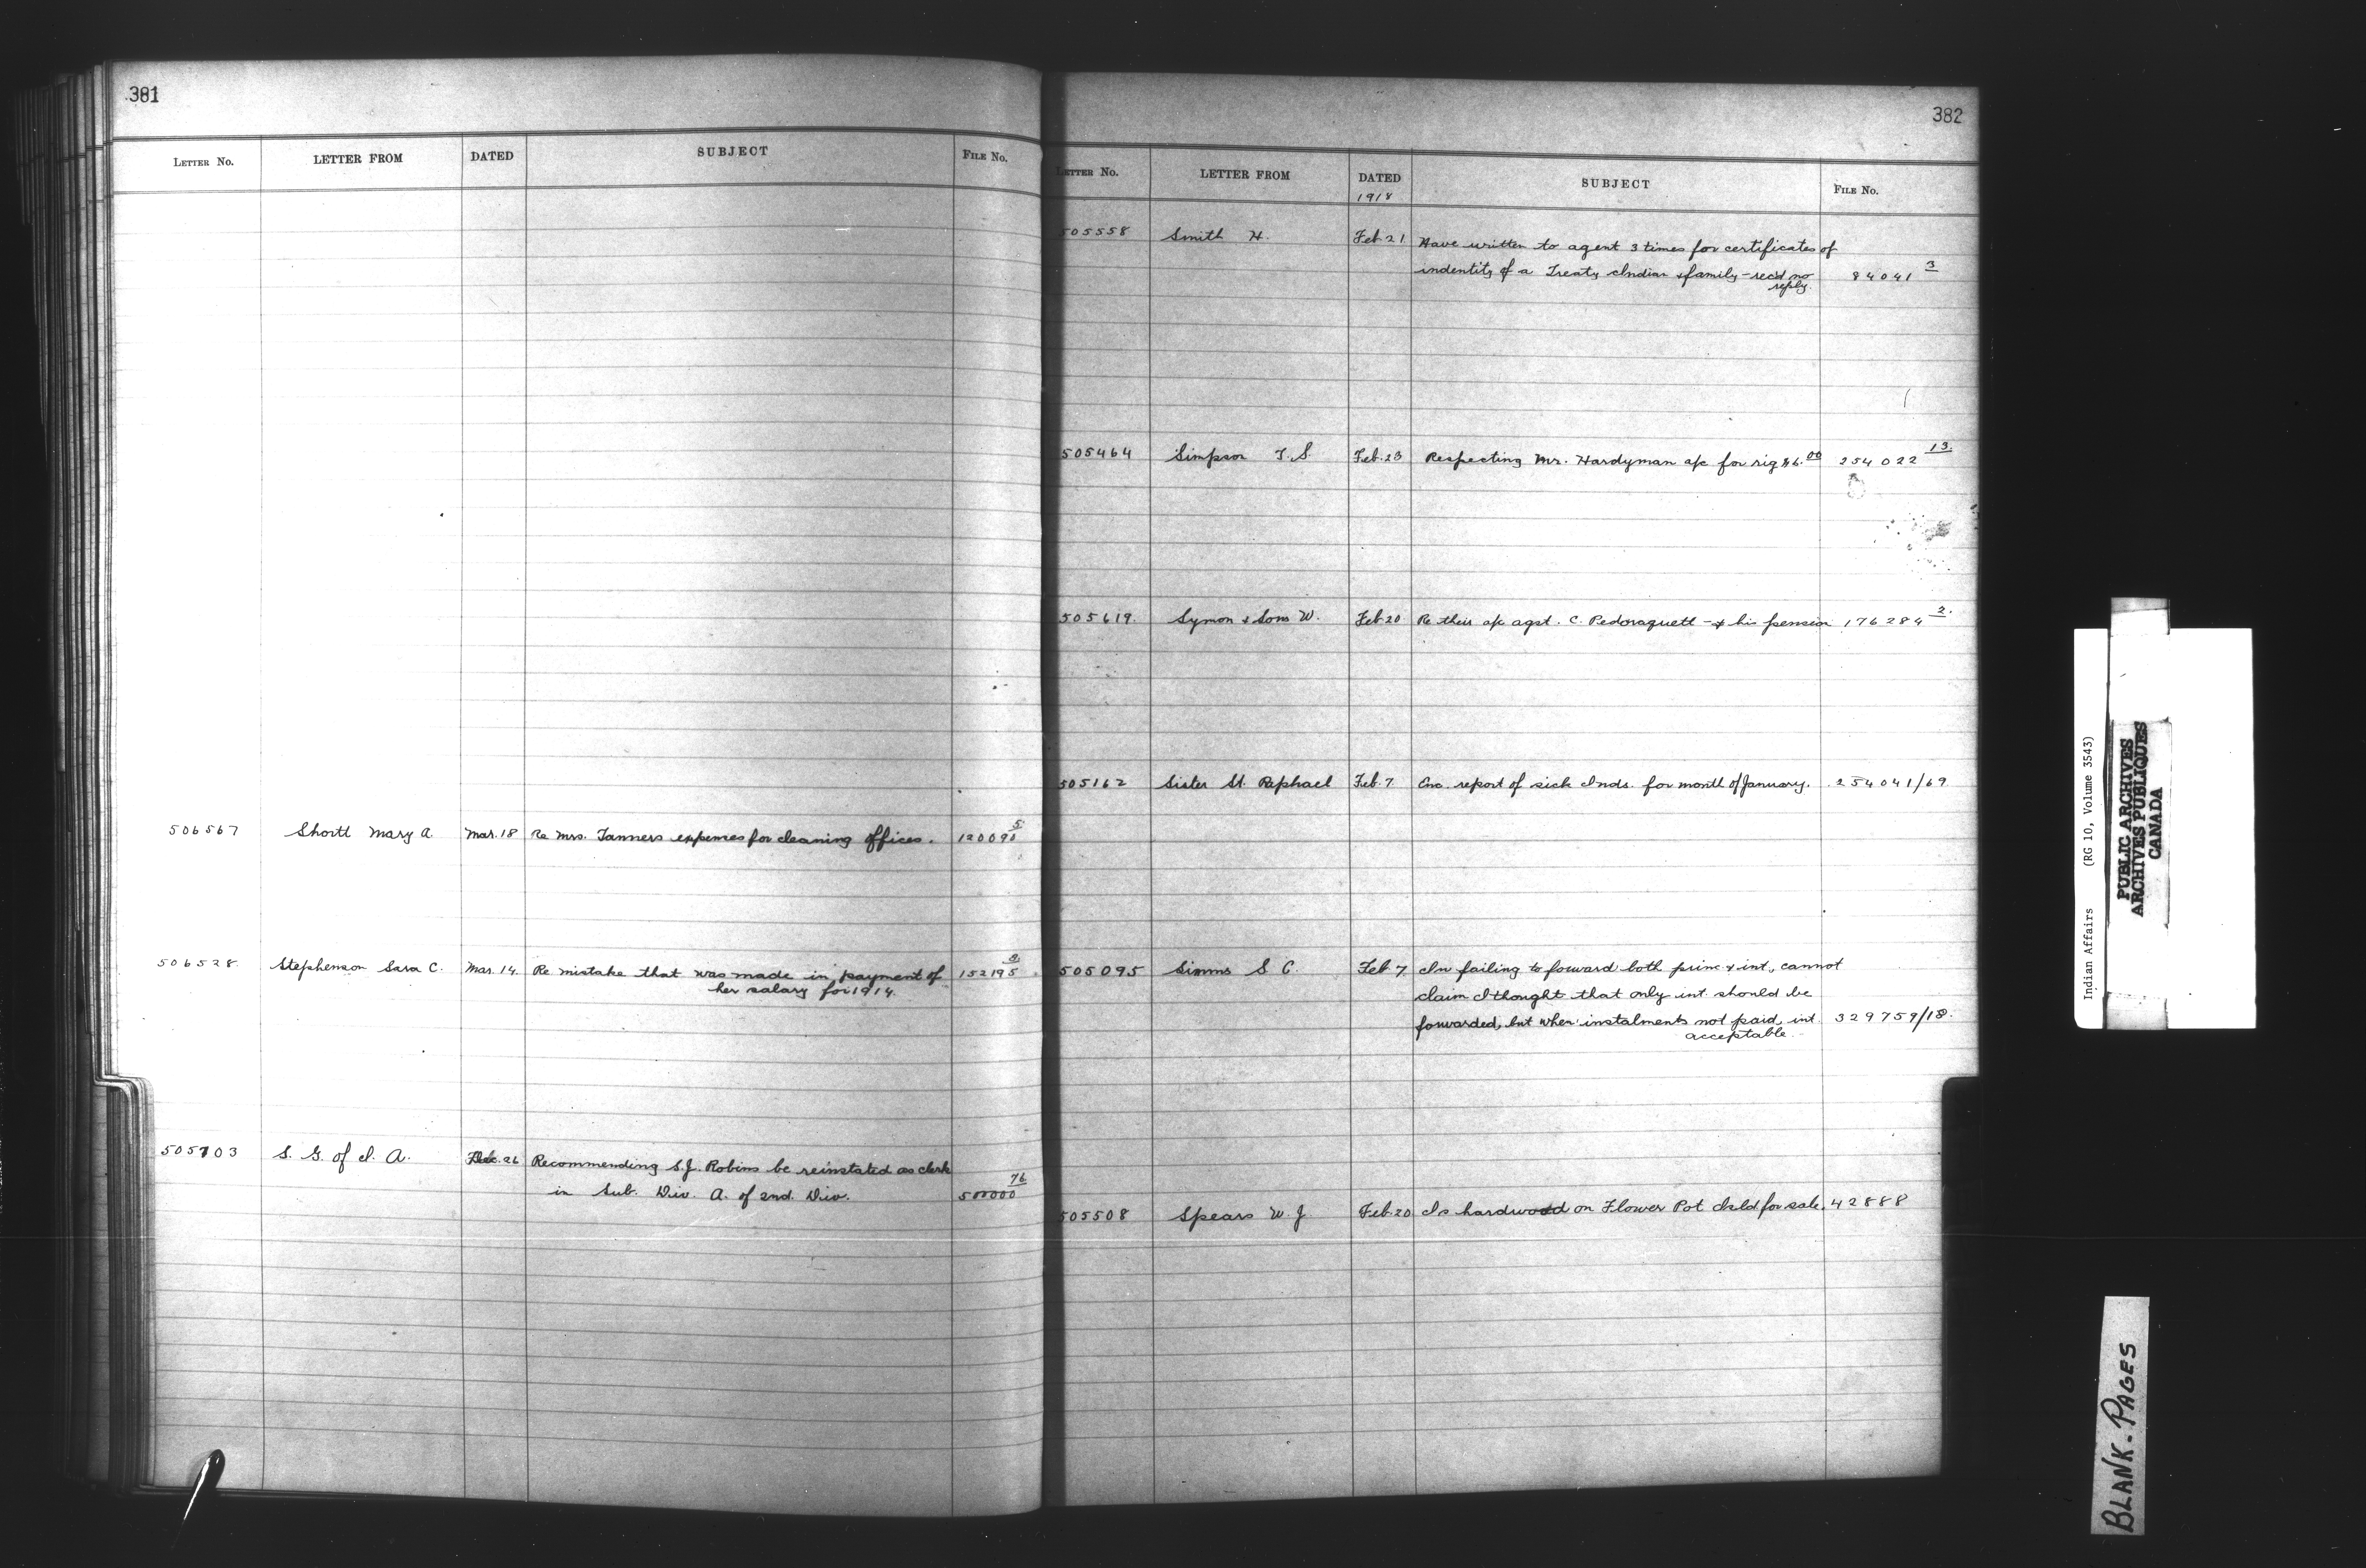 381
LETTER No. LETTER FROM DATED SUBJECT FILE No.
506567 Shortt Mary A Mar. 18 Re Mrs. Tanners expenses for cleaning offices. 120090 5
506528 Stephenson Sara C. Mar. 14. Re mistake that was made in payment of 152195
her salary for 1914.
505703 S. G. of I. A. 26 Recommending S.J. Robins be reinstated as clerk
in Sub. Div. A. of 2nd. Div. 500000 76
382
LETTER No. LETTER FROM DATED SUBJECT FILE No.
1918
505558 Smith H. Feb 21 Have written to agent 3 times for certificates of
indentity of a Treaty Indian & family - rec'd no 84041 3
reply.
505464 Simpson T. S. Feb. 23 Respecting Mr. Hardyman a/c for rig $6.00 254022 13.
505619. Symon & Sons W. Feb. 20 Re their a/c agst. C. Pedoraquett - & his pension 176284 2.
505162 Sister St. Raphael Feb. 7 Enc. report of sick Inds. for month of January. 254041/69
505095 Simms S C. Feb 7 In failing to forward both princ & int., cannot
claim I thought that only int should be
forwarded, but when instalments not paid, int. 329759/18.
acceptable.
505508 Spears W. J Feb. 20 Is hardwood on Flower Pot Isld for sale. 42888
Indian Affairs (RG 10, Volume 3543)
PUBLIC ARCHIVES
ARCHIVES PUBLIQUES
CANADA
BLANK-PAGES